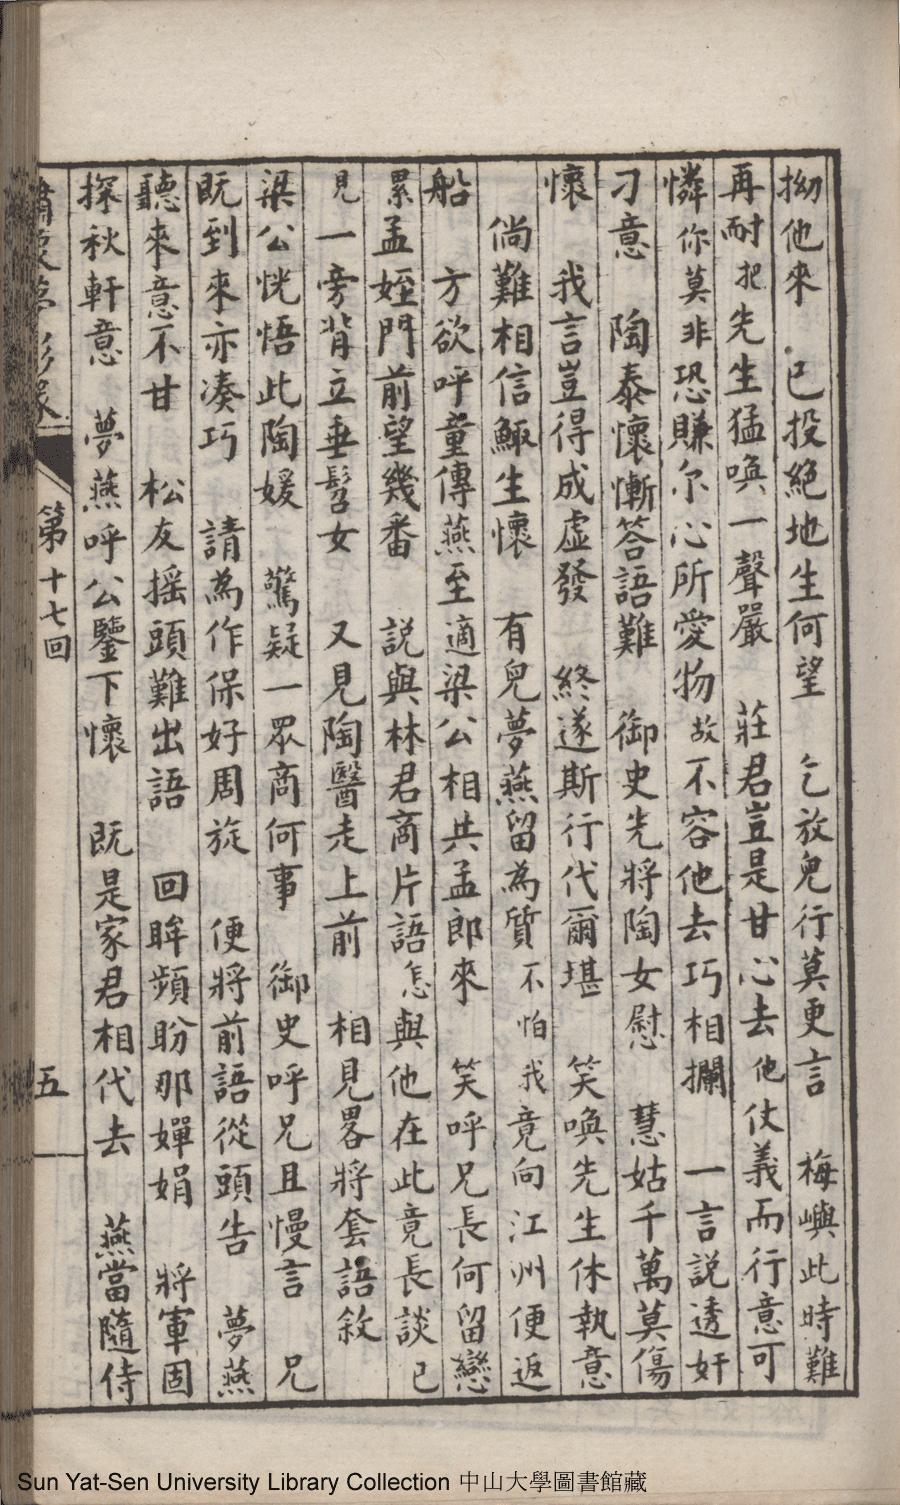 拗他來　已投絕地生何望　乞放兒行莫更言　梅嶼此時難
再耐把先生猛喚一聲嚴　莊君豈是甘心去他仗義而行意可
憐你莫非恐賺尓心所愛物故不容他去巧相攔　一言說透奸
刁意　陶泰懷慚答語難　御史先將陶女慰　慧姑千萬莫傷
懷　我言豈得成虛發　終遂斯行代爾堪　笑喚先生休執意
倘難相信鯫生懷　有兒夢燕留為質不怕我竟向江州便返
船　方欲呼童傳燕至適梁公相共孟郎來　笑呼兄長何留戀
累孟姪門前望幾番　說與林君商片語怎與他在此竟長談已
見一旁背立垂髫女　又見陶醫走上前　相見畧將套語敘
梁公恍悟此陶媛　驚疑一眾商何事　御史呼兄且慢言　兄
既到來亦湊巧　請為作保好周旋　便將前語從頭告　夢燕
聽來意不甘　松友摇頭難出語　回眸頻盼那嬋娟　將軍固
探秋軒意　夢燕呼公鑒下懷　既是家君相代去　燕當隨侍
第十七回
五
Sun Yat-Sen University Library Collection 中山大學圖書館藏